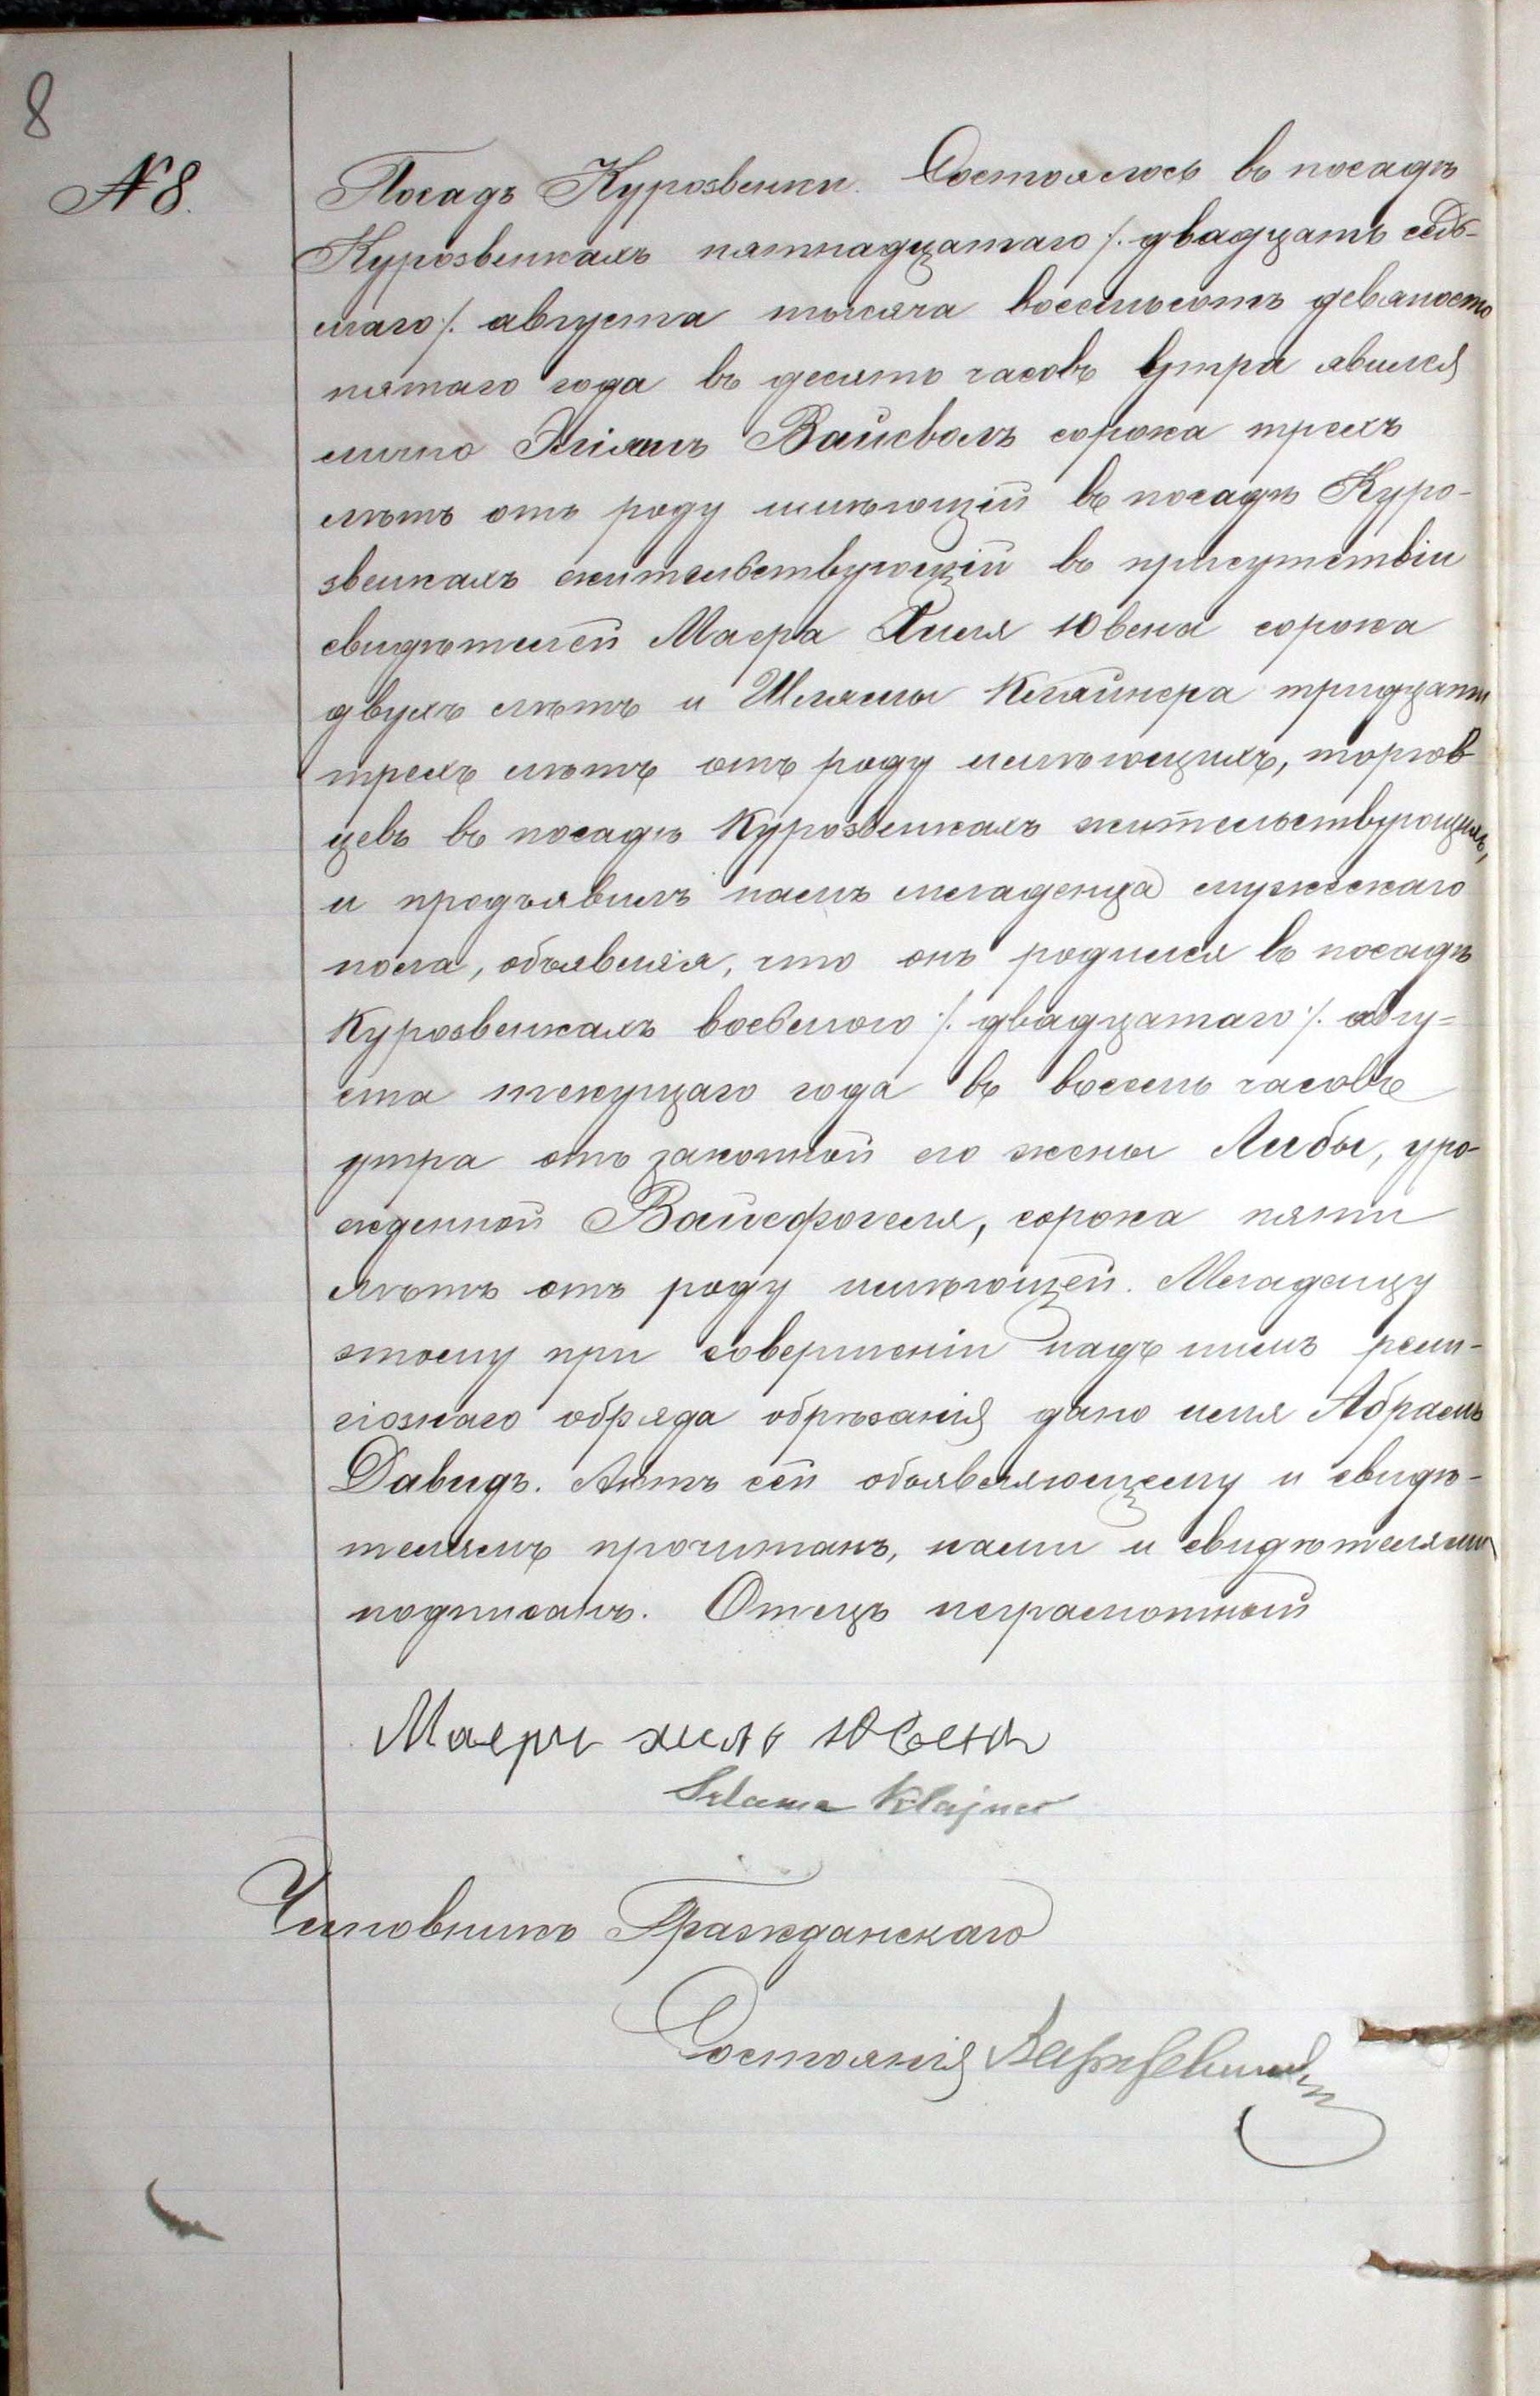 8
№ 8.
Посадъ Курозвенки. Состоялось въ посадѣ
Курозвенкахъ пятнадцатаго /. двадцать седь-
маго /. августа тысяча восемьсотъ девяносто
пятаго года въ десять часовъ утра явился
лично Хілъ Вайсволъ сорока трехъ
лѣтъ отъ роду имѣющій въ посадѣ Куро-
звенкахъ жительствующій въ присутствіи
свидѣтелей Маера Хиля Ювена сорока
двухъ лѣтъ и Шлямы Клайнера тридцати
трехъ лѣтъ отъ роду имѣющихъ, торгов
цевъ въ посадѣ Курозвенкахъ жительствующихъ,
и предъявилъ намъ младенца мужескаго
пола, объявляя, что онъ родился въ посадѣ
Курозвенкахъ восьмого /. двадцатаго /. авгу=
ста текущаго года въ восемь часовъ
утра отъ законной его жены Либы, уро-
жденной Вайсфогеля, сорока пяти
лѣтъ отъ роду имѣющей. Младенцу
этому при совершеніи надъ нимъ рели-
гіознаго обряда обрѣзанія дано имя Абрамъ
Давидъ. Актъ сей объявляющему и свидѣ-
телямъ прочитанъ, нами и свидѣтелями
подписанъ. Отецъ неграмотный
Маеръ хиль Ювенъ
Szlama Klajner
Чиновникъ Гражданскаго
Состоянія